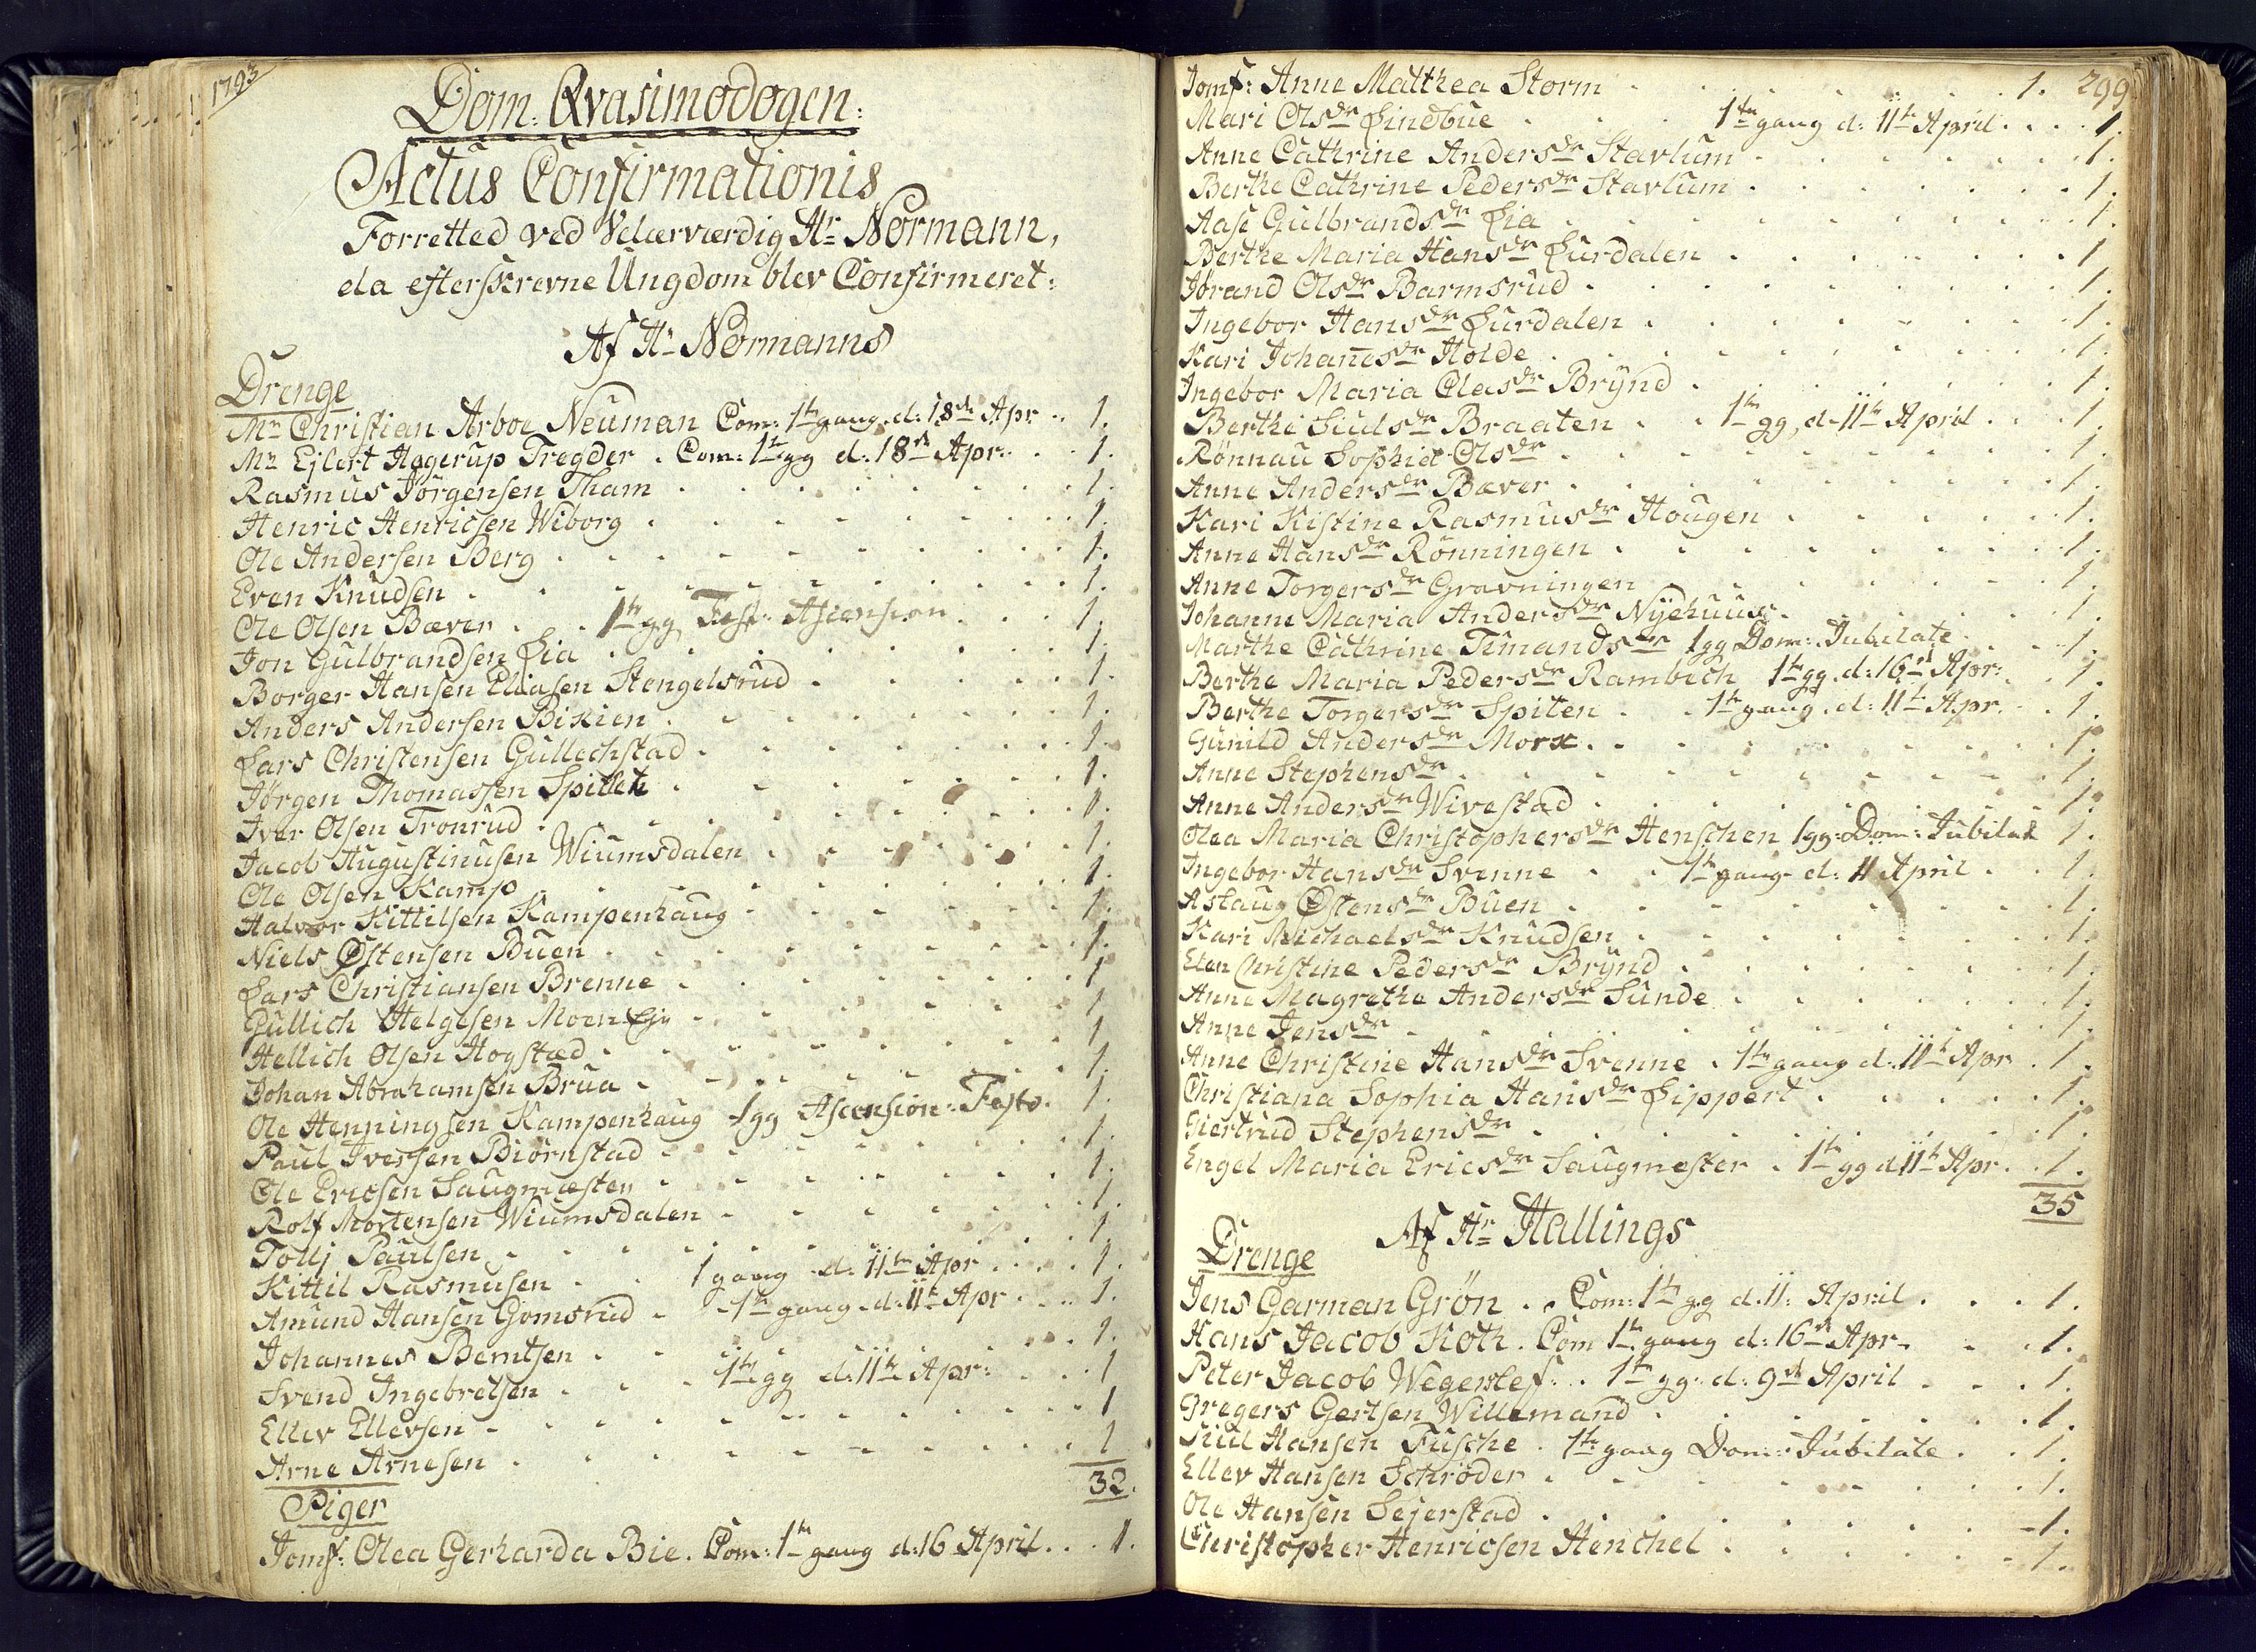 1793
Dom: Qvasimodogen:
Actus Confirmationis
Forretted ved Velærværdig Hr Normann,
da efterskrevne Ungdom blev Confirmeret:
Af Hr Normanns
Drenge
Mr Christian Arboe Neuman Com: 1te gang d: 18de Apr .. 1.
Mr Ejlert Hagerup Tregder . Com: 1te gg d: 18de Apr: . . 1.
Rasmus Jørgensen Tham . . . 1.
Henric Henricsen Wiborg . . . 1.
Ole Andersen Berg . . . 1.
Even Knudsen . . . 1.
Ole Olsen Bæver . . 1te gg Fest: Ascension . . . 1.
Jon Gulbrandsen Lia . . . 1.
Borger Hansen Eliasen Stengelsrud . . . 1.
Anders Andersen Bikien . . . 1.
Lars Christensen Gullechstad . . . 1.
Jørgen Thomassen Spitten . . . 1.
Iver Olsen Tronrud . . . 1.
Jacob Augustinusen Wiumsdalen . . . 1.
Ole Olsen Kamp . . . 1.
Halvor Kittilsen Kampenhaug . . . 1.
Niels Østensen Buen . . . 1.
Lars Christiansen Brenne . . . 1
Gullich Helgesen Moen Eje . . . 1
Hellich Olsen Hogstad . . . 1
Johan Abrahamsen Brua . . . 1.
Ole Henningsen Kampenhaug 1 gg Ascension: Festo. 1.
Paul Iversen Biørnstad . . . 1.
Ole Ericsen Saugmester . . . 1.
Rolf Mortensen Wiumsdalen . . . 1.
Tollj Paulsen . . . 1
Kittil Rasmusen . . 1 gang d: 11te Apr . . . 1.
Amund Hansen Gomsrud . 1te gang d: 11te Apr . . . 1.
Johannes Berntsen . . . 1.
Svend Ingebretsen . . . 1te gg d: 11te Apr: . . 1
Ellev Ellevsen . . . 1
Arne Arnesen . . . 1
32.
Piger
Jomf: Olea Gerharda Bie. Com: 1te gang d: 16 April . . . 1.
Jomf: Anne Matthea Storm . . . 1. 299
Mari Olsdr Lindbue . . . 1te gang d: 11te April . . . 1.
Anne Cathrine Andersdr Stavlum . . . 1.
Berthe Cathrine Pedersdr Stavlum . . . 1.
Aase Gulbrandsdr Lia . . . 1.
Berthe Maria Hansdr Lurdalen . . . 1
Jørand Olsdr Barmsrud . . . 1.
Ingebor Hansdr Lurdalen . . . 1.
Kari Johanesdr Holde . . . 1.
Ingebor Maria Olasdr Brÿnd . . . 1.
Berthe Siulsdr Braaten . . 1te gg, d: 11te April . . . 1.
Rønnau Sophia Olsdr . . . 1.
Anne Andersdr Bæver . . . 1.
Kari Kistine Rasmusdr Hougen . . . 1.
Anne Hansdr Rönningen . . . 1.
Anne Torgersdr Gravningen . . . 1.
Johanne Maria Andersdr Nÿehuus . . . 1.
Marthe Cathrine Timandsdr 1 gg Dom: Jubilate . . . 1.
Berthe Maria Pedersdr Rambech 1te gg. d: 16de Apr: . . 1.
Berthe Torgersdr Spiten . . 1te gang d: 11te Apr. . . 1.
Gunild Andersdr Morx . . . 1.
Anne Stephensdr . . . 1.
Anne Andersdr Wivestad . . . 1.
Olea Maria Christophersdr Henschen 1 gg: Dom: Jubilat 1.
Ingebor Hansdr Svenne . . 1te gang d: 11 April . . 1.
Aslaug Østensdr Buen . . . 1.
Kari Michaelsdr Knudsen . . . 1.
Elen Christine Pedersdr Brÿnd . . . 1.
Anne Magrethe Andersdr Sunde . . . 1.
Anne Jensdr . . . 1.
Anne Christine Hansdr Svenne . 1te gang d: 11te Apr . 1.
Christiana Sophia Hansdr Lippert . . . 1.
Giertrud Stephensdr . . . 1.
Engel Maria Ericsdr Saugmester . 1te gg d 11te Apr. . 1.
35
Af Hr Hallings
Drenge
Jens Garman Grön . . Com: 1te gg d. 11: April . . . 1.
Hans Jacob Koth. Com 1te gang d: 16de Apr . . . 1.
Peter Jacob Wegerslef: . 1te gg: d: 9de April . . . 1.
Gregers Gertsen Willemand . . . 1.
Siul Hansen Fusche . 1te gang Dom: Jubilate . . 1.
Ellev Hansen Schröder . . . 1.
Ole Hansen Sejerstad . . . 1.
Christopher Henricsen Henchel . . . 1.